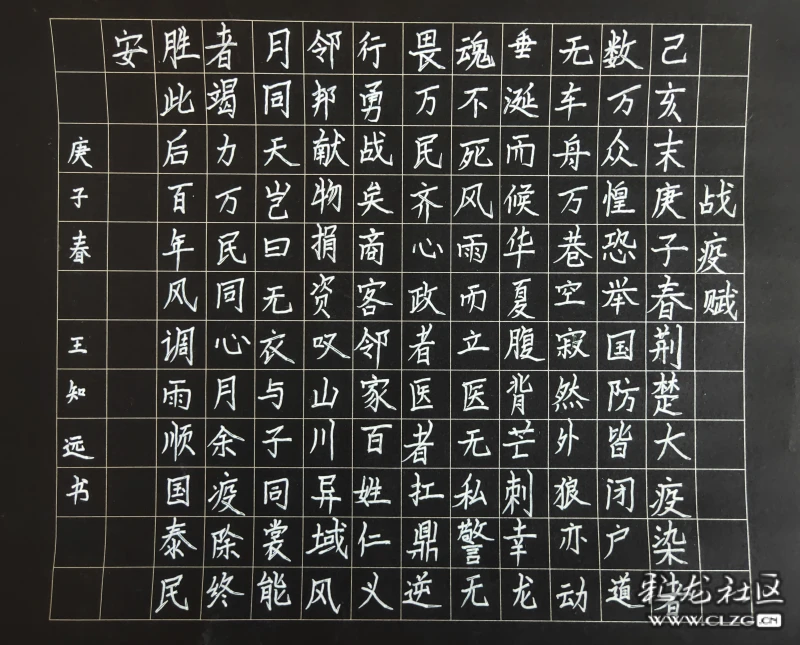 战疫赋
己亥末庚子春荆楚大疫染者
数万众惶恐举国防皆闭户道
无车舟万巷空寂然外狼亦动
垂涎而候华夏腹背芒刺幸龙
魂不死风雨而立医无私警无
畏万民齐心政者医者扛鼎逆
行勇战矣商客邻家百姓仁义
邻邦献物捐资叹山川异域风
月同天岂曰无衣与子同裳能
者竭力万民同心月余疫除终
胜此后百年风调雨顺国泰民
安
庚子春 王知远书
彩龙社区
WWW.CLZG.CN